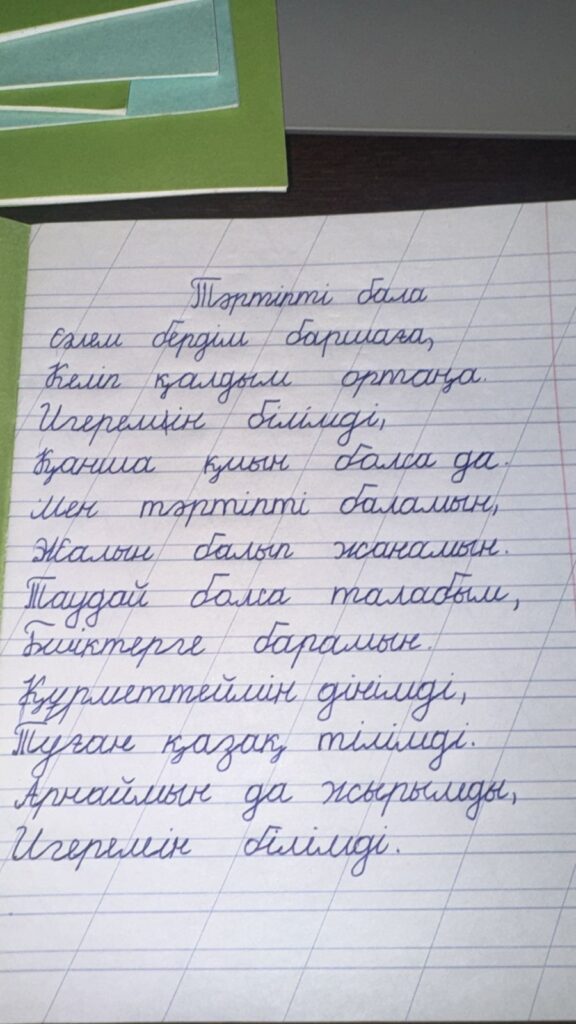 Тәртіпті бала
Сәлем бердім баршаға,
Келіп қалдым ортаңа.
Игеремін білімді,
Қанша қиын болса да.
Мен тәртіпті баламын,
Жалын балып жанамын.
Таудай болса талабым,
Биіктерге барамын.
Құрметтеймін дінімді,
Туған қазақ тілімді.
Арнаймын да жырымды,
Игеремін білімді.